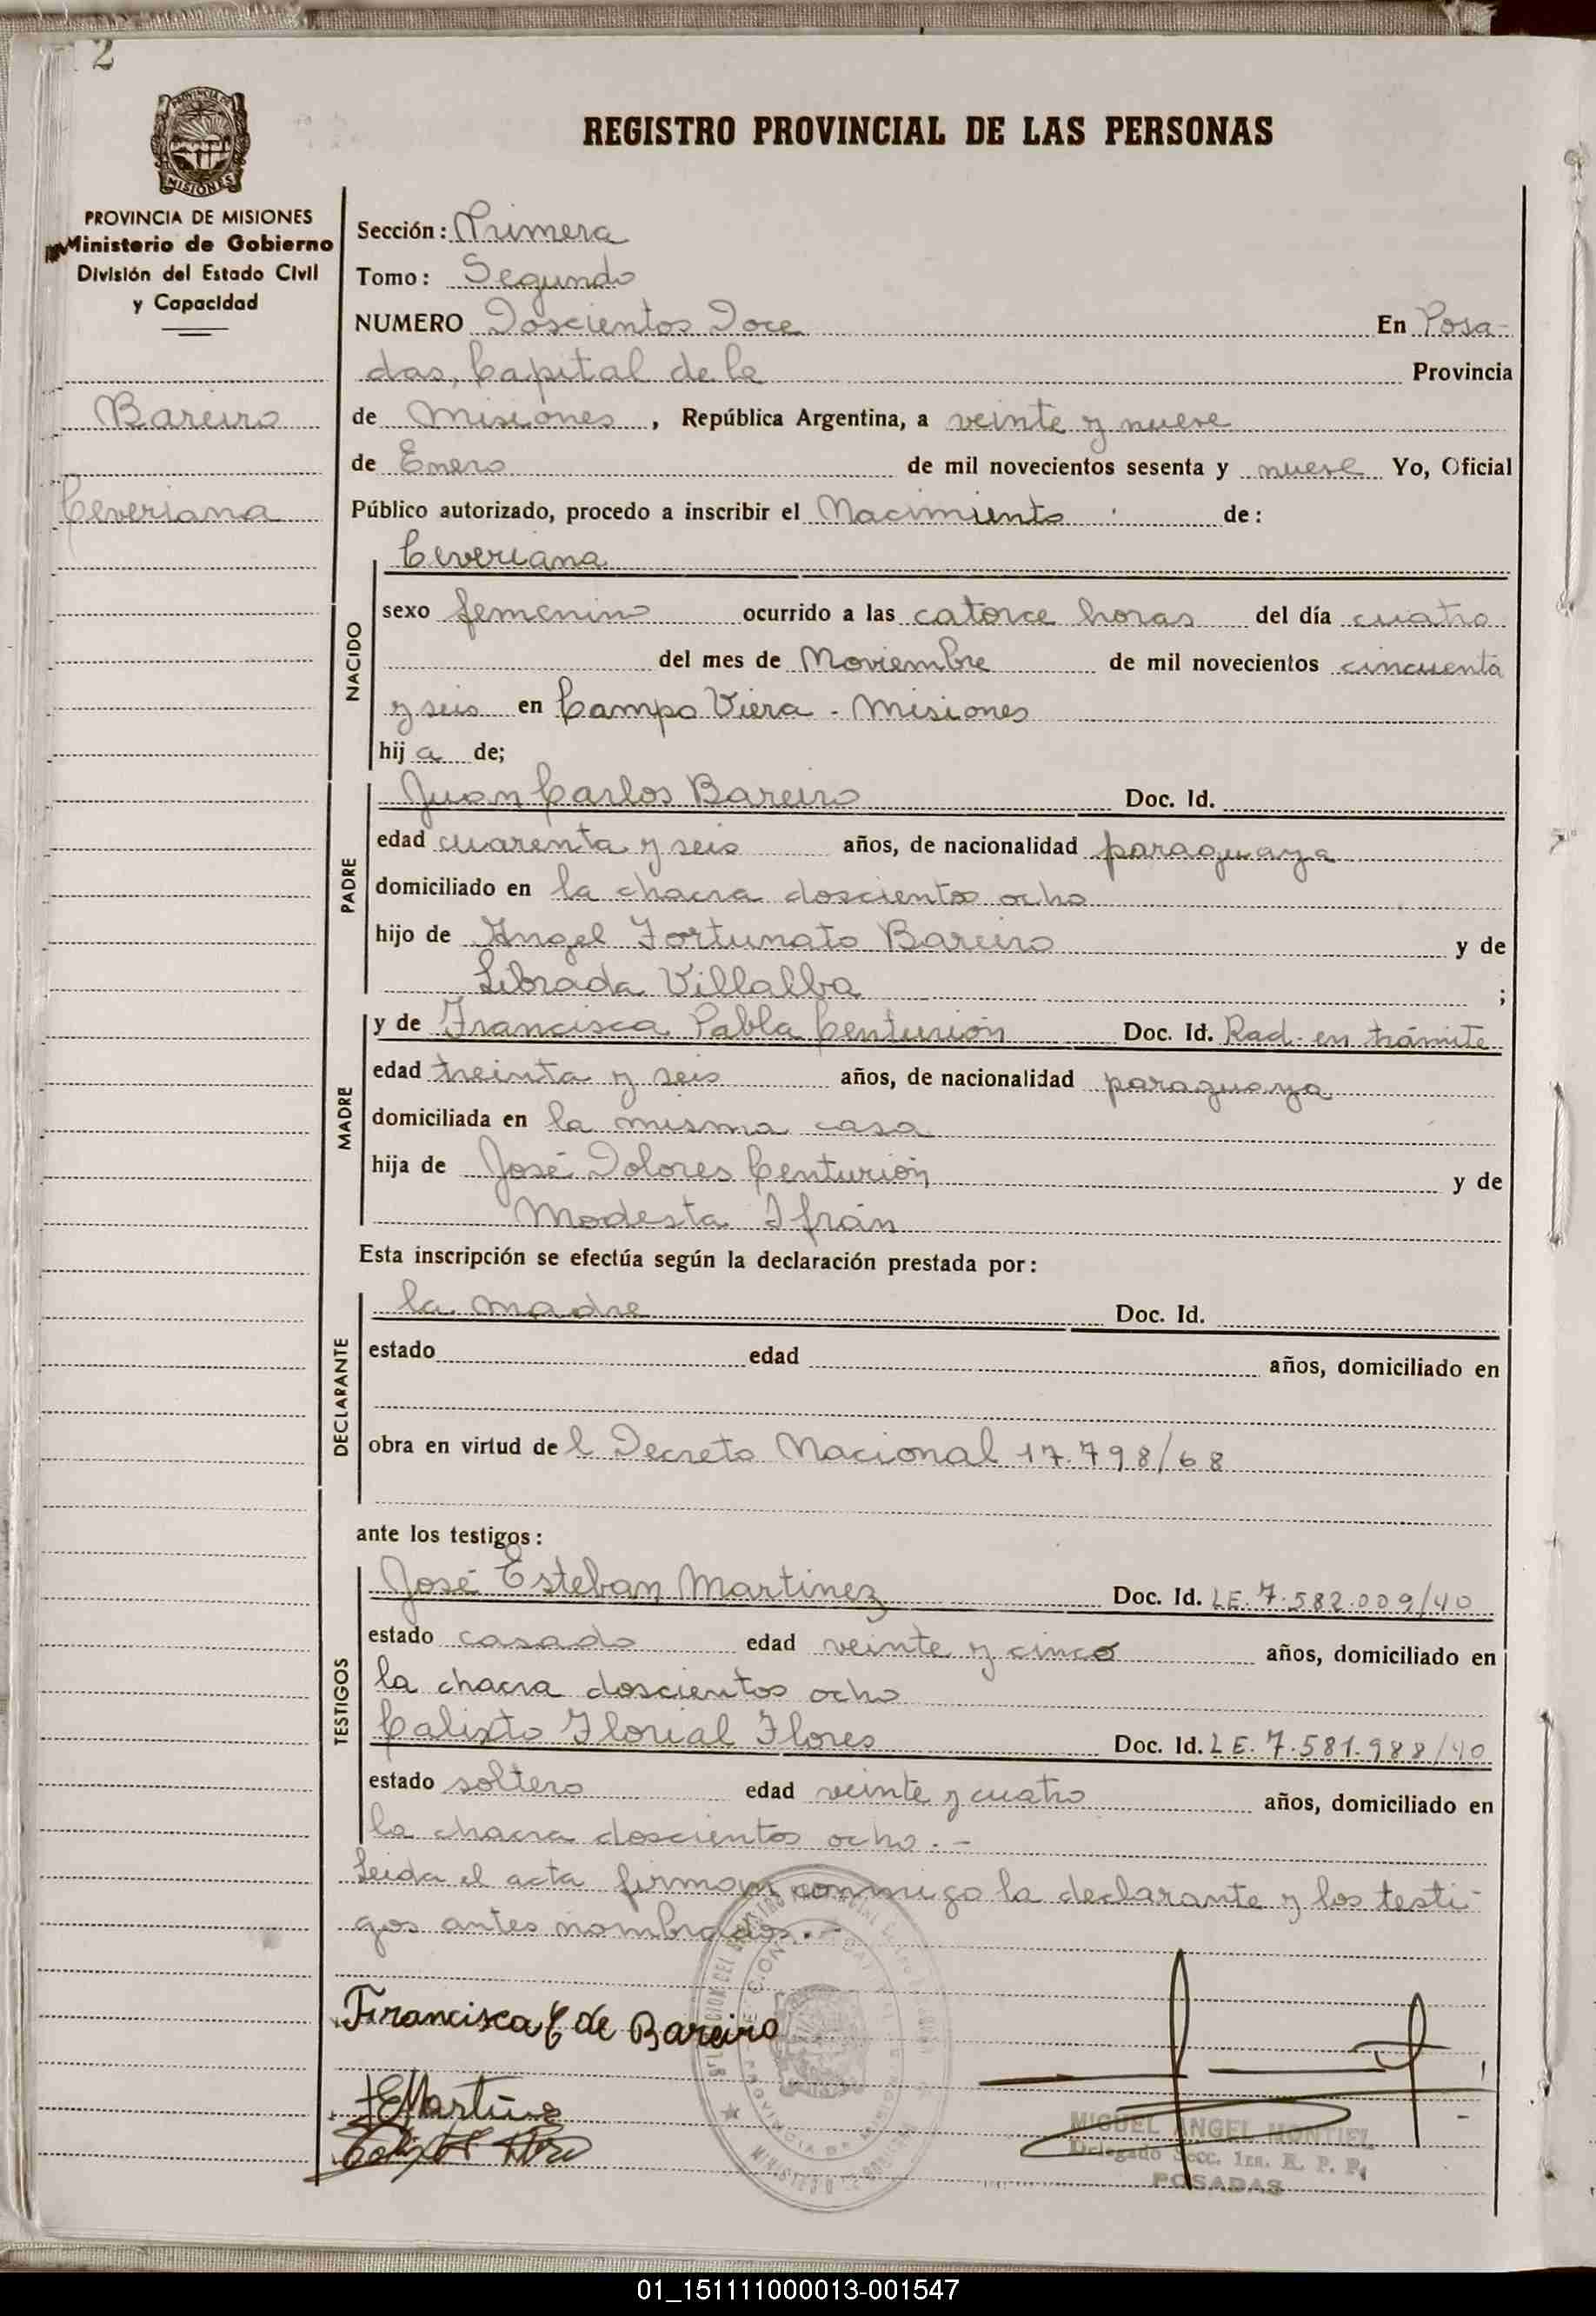 2
REGISTRO PROVINCIAL DE LAS PERSONAS
PROVINCIA DE MISIONES
Ministerio de Gobierno
División del Estado Civil
y Capacidad
Bareiro
Ceveriana
Sección: Primera
Tomo: Segundo
NUMERO Doscientos Doce En Posa-
das, Capital de la Provincia
de Misiones, República Argentina, a veinte y nueve
de Enero de mil novecientos sesenta y nueve Yo, Oficial
Público autorizado, procedo a inscribir el Nacimiento de:
Ceveriana
NACIDO
sexo femenino ocurrido a las catorce horas del día cuatro
del mes de Noviembre de mil novecientos cincuenta
y seis en Campo Viera - Misiones
hija de;
PADRE
Juan Carlos Bareiro Doc. Id.
edad cuarenta y seis años, de nacionalidad paraguaya
domiciliado en la chacra doscientos ocho
hijo de Angel Fortunato Bareiro y de
Librada Villalba ;
MADRE
y de Francisca Pabla Centurión Doc. Id. Rad. en trámite
edad treinta y seis años, de nacionalidad paraguaya
domiciliada en la misma casa
hija de José Dolores Centurión y de
Modesta Ifrán
Esta inscripción se efectúa según la declaración prestada por:
DECLARANTE
la madre Doc. Id.
estado edad años, domiciliado en
obra en virtud del Decreto Nacional 17.798/68
ante los testigos:
TESTIGOS
José Esteban Martinez Doc. Id. LE. 7.582.009/40
estado casado edad veinte y cinco años, domiciliado en
la chacra doscientos ocho
Calixto Florial Flores Doc. Id. LE. 7.581.988/40
estado soltero edad veinte y cuatro años, domiciliado en
la chacra doscientos ocho.-
Leida el acta firman conmigo la declarante y los testi-
gos antes nombrados.-
Francisca C de Bareiro
JEMartinez
MIGUEL ANGEL MONTIEL
Delegado Secc. 1ra. R. P. P.
POSADAS
01_151111000013-001547